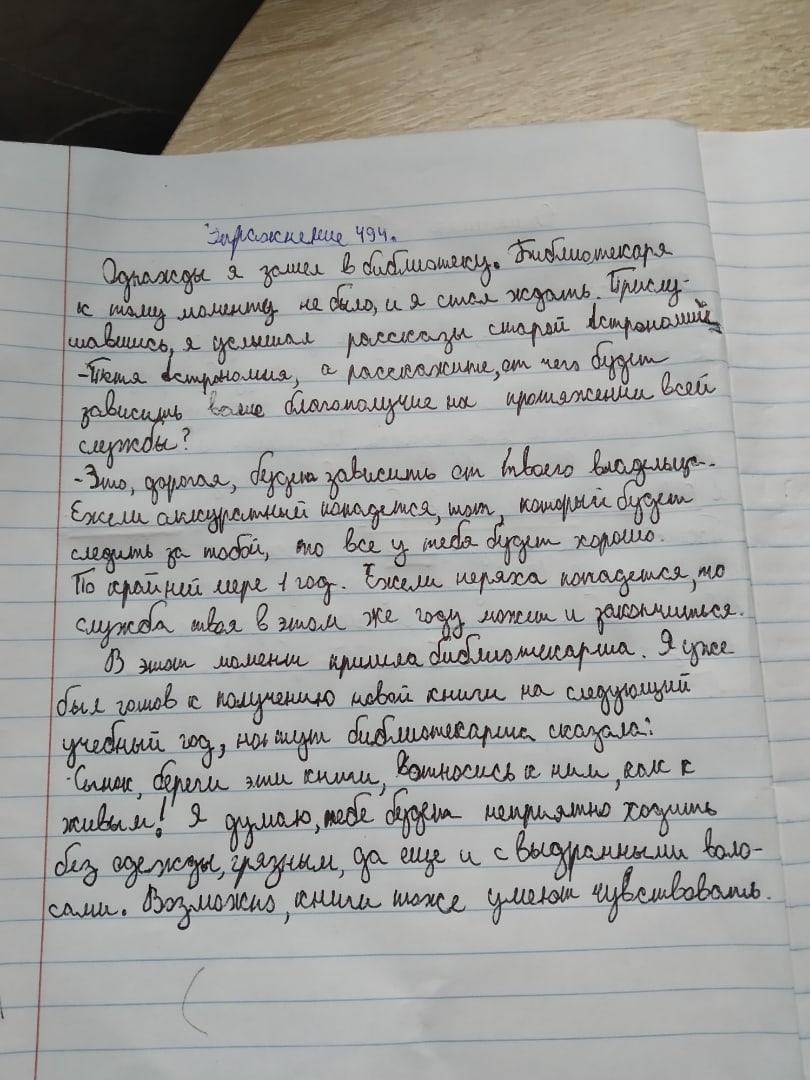 Упражнение 494.
Однажды я зашел в библиотеку. Библиотекаря
к тому моменту не было, и я стал ждать. Прислу-
шавшись, я услышал рассказы старой Астрономии
-Тётя Астрономия, а расскажите, от чего будет
зависить ваше благополучие на протяжении всей
службы?
-Это, дорогая, будет зависить от твоего владельца.
Ежели аккуратный попадется, тот, который будет
следить за тобой, то все у тебя будет хорошо.
По крайней мере 1 год. Ежели неряха попадется, то
служба твоя в этом же году может и закончиться.
В этот момент пришла библиотекарша. Я уже
был готов к получению новой книги на следующий
учебный год, но тут библиотекарша сказала:
-Сынок, береги эти книги, относись к ним, как к
живым! Я думаю, тебе будет неприятно ходить
без одежды, грязным, да еще и с выдранными воло-
сами. Возможно, книги тоже умеют чувствовать.